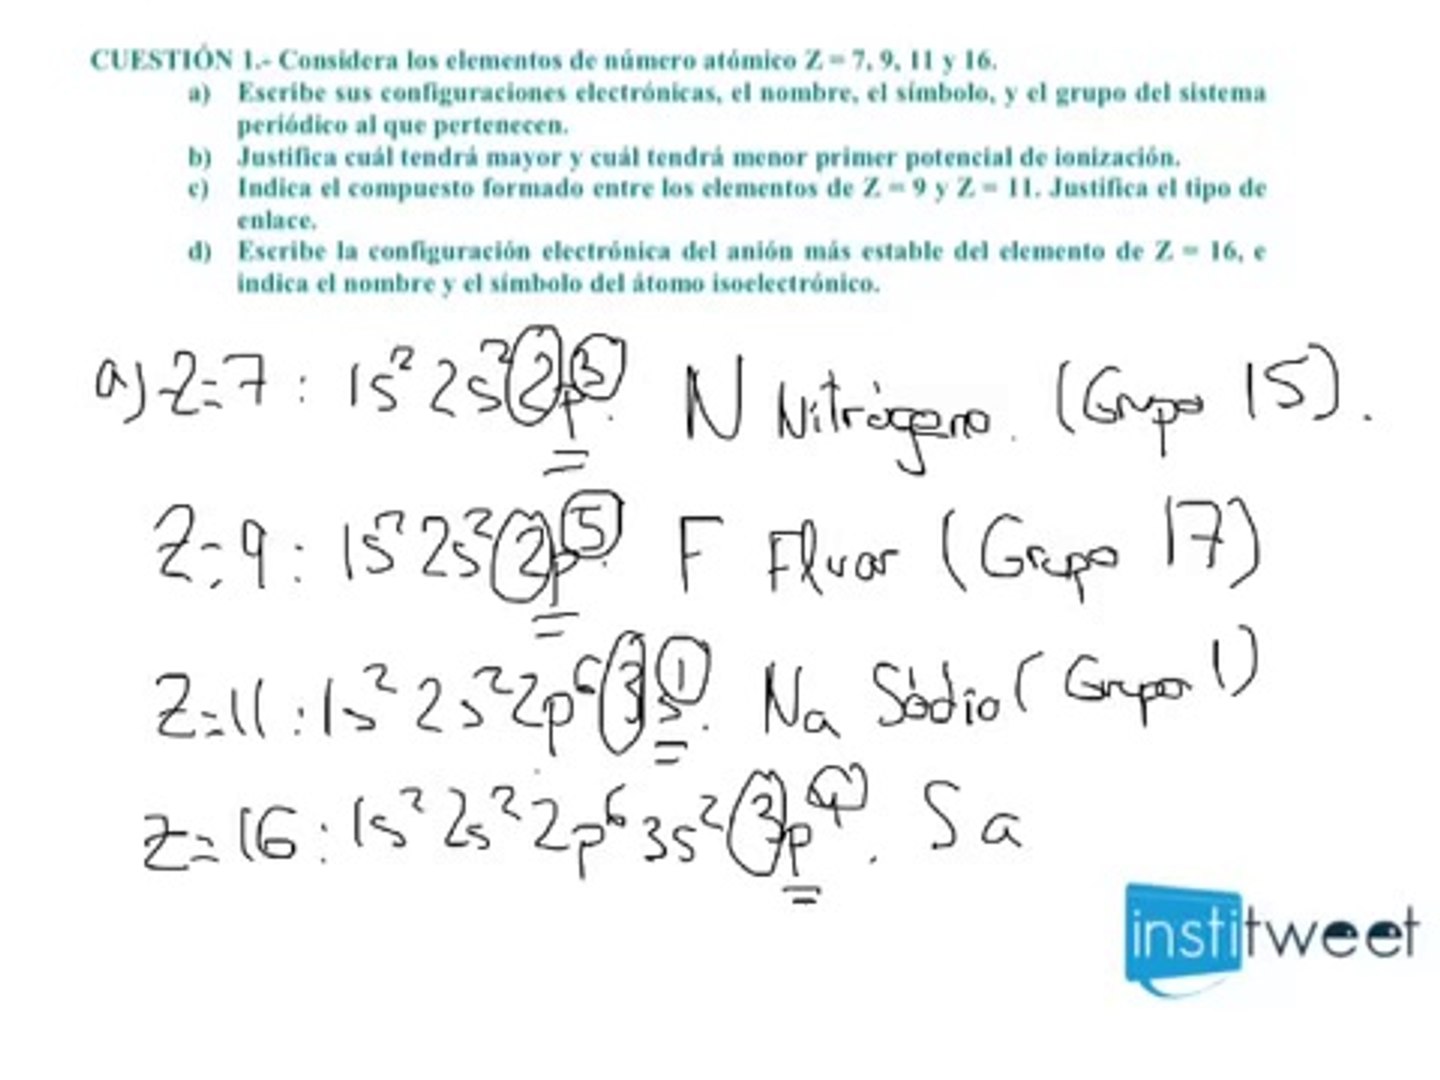 CUESTIÓN 1.- Considera los elementos de número atómico Z = 7, 9, 11 y 16.
a) Escribe sus configuraciones electrónicas, el nombre, el símbolo, y el grupo del sistema
periódico al que pertenecen.
b) Justifica cuál tendrá mayor y cuál tendrá menor primer potencial de ionización.
c) Indica el compuesto formado entre los elementos de Z = 9 y Z = 11. Justifica el tipo de
enlace.
d) Escribe la configuración electrónica del anión más estable del elemento de Z = 16, e
indica el nombre y el símbolo del átomo isoelectrónico.
a) Z=7 : 1s² 2s² 2p³. N Nitrógeno. (Grupo 15).
Z=9 : 1s² 2s² 2p⁵. F Fluor (Grupo 17)
Z=11 : 1s² 2s² 2p⁶ 3s¹. Na Sódio (Grupo 1)
Z=16 : 1s² 2s² 2p⁶ 3s² 3p⁴. S a
institweet